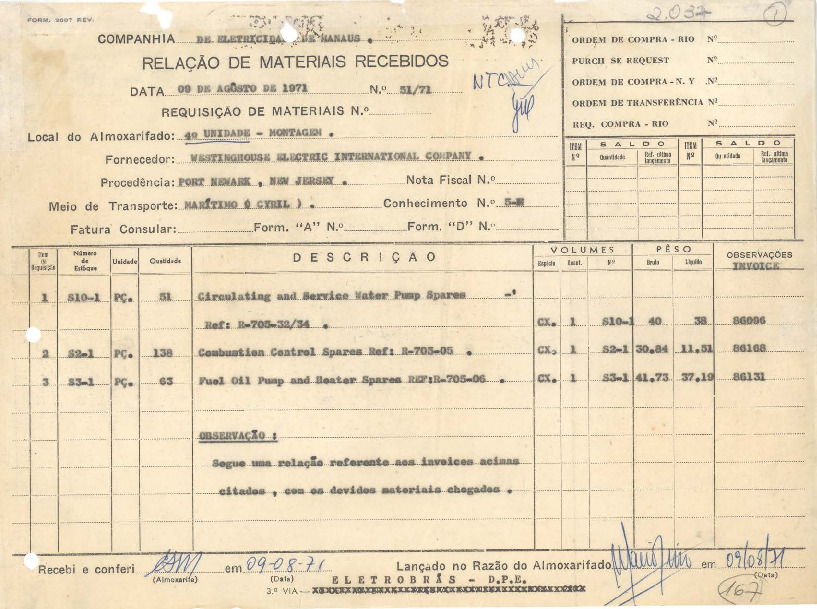 FORM. 2007 REV.
2.037 1
COMPANHIA DE ELETRICIDADE DE MANAUS .
RELAÇÃO DE MATERIAIS RECEBIDOS
DATA 09 DE AGÔSTO DE 1971 N.º 51/71
REQUISIÇÃO DE MATERIAIS N.º
Local do Almoxarifado: 4ª UNIDADE - MONTAGEM .
Fornecedor: WESTINGHOUSE ELECTRIC INTERNATIONAL COMPANY .
Procedência: PORT NEWARK , NEW JERSEY . Nota Fiscal N.º
Meio de Transporte: MARÍTIMO ( CYRIL ) . Conhecimento N.º
Fatura Consular: Form. "A" N.º Form. "D" N.º
ORDEM DE COMPRA - RIO Nº
PURCH SE REQUEST Nº
ORDEM DE COMPRA - N. Y Nº
ORDEM DE TRANSFERÊNCIA Nº
REQ. COMPRA - RIO Nº
ITEM Nº SALDO ITEM Nº SALDO
Quantidade Ref. última lançamento Qu ntidade Ref. última lançamento
Item da Requisição Número de Estóque Unidade Quatidade DESCRIÇAO VOLUMES PÊSO OBSERVAÇÕES
Espécie Quant. Nº Bruto Líquido INVOICE
1 S10-1 PÇ. 51 Circulating and Service Water Pump Spares
Ref: R-705-32/34 . CX. 1 S10-1 40 38 86096
2 S2-1 PÇ. 138 Combustion Control Spares Ref: R-705-05 . CX. 1 S2-1 30.84 11.51 86168
3 S3-1 PÇ. 63 Fuel Oil Pump and Heater Spares REF:R-705-06 . CX. 1 S3-1 41.73 37.19 86131
OBSERVAÇÃO :
Segue uma relação referente aos invoices acimas
citados , com os devidos materiais chegados .
Recebi e conferi em 09-08-71 Lançado no Razão do Almoxarifado em 09/08/71
(Almoxarife) (Data) (Data)
ELETROBRÁS - D.P.E.
3.ª VIA -
167